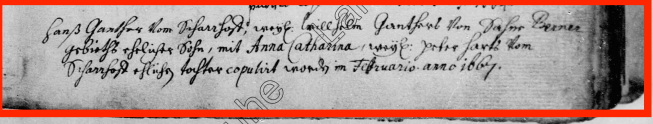 Hanß Ganther vom Scharrhoff, weyl: Willhelm Ganthers von Berner
gebieths ehelicher Sohn, mit Anna Catharina, weyl: peter harts vom
Scharrhoff ehlichen tochter copulirt worden in Februario anno 1667.